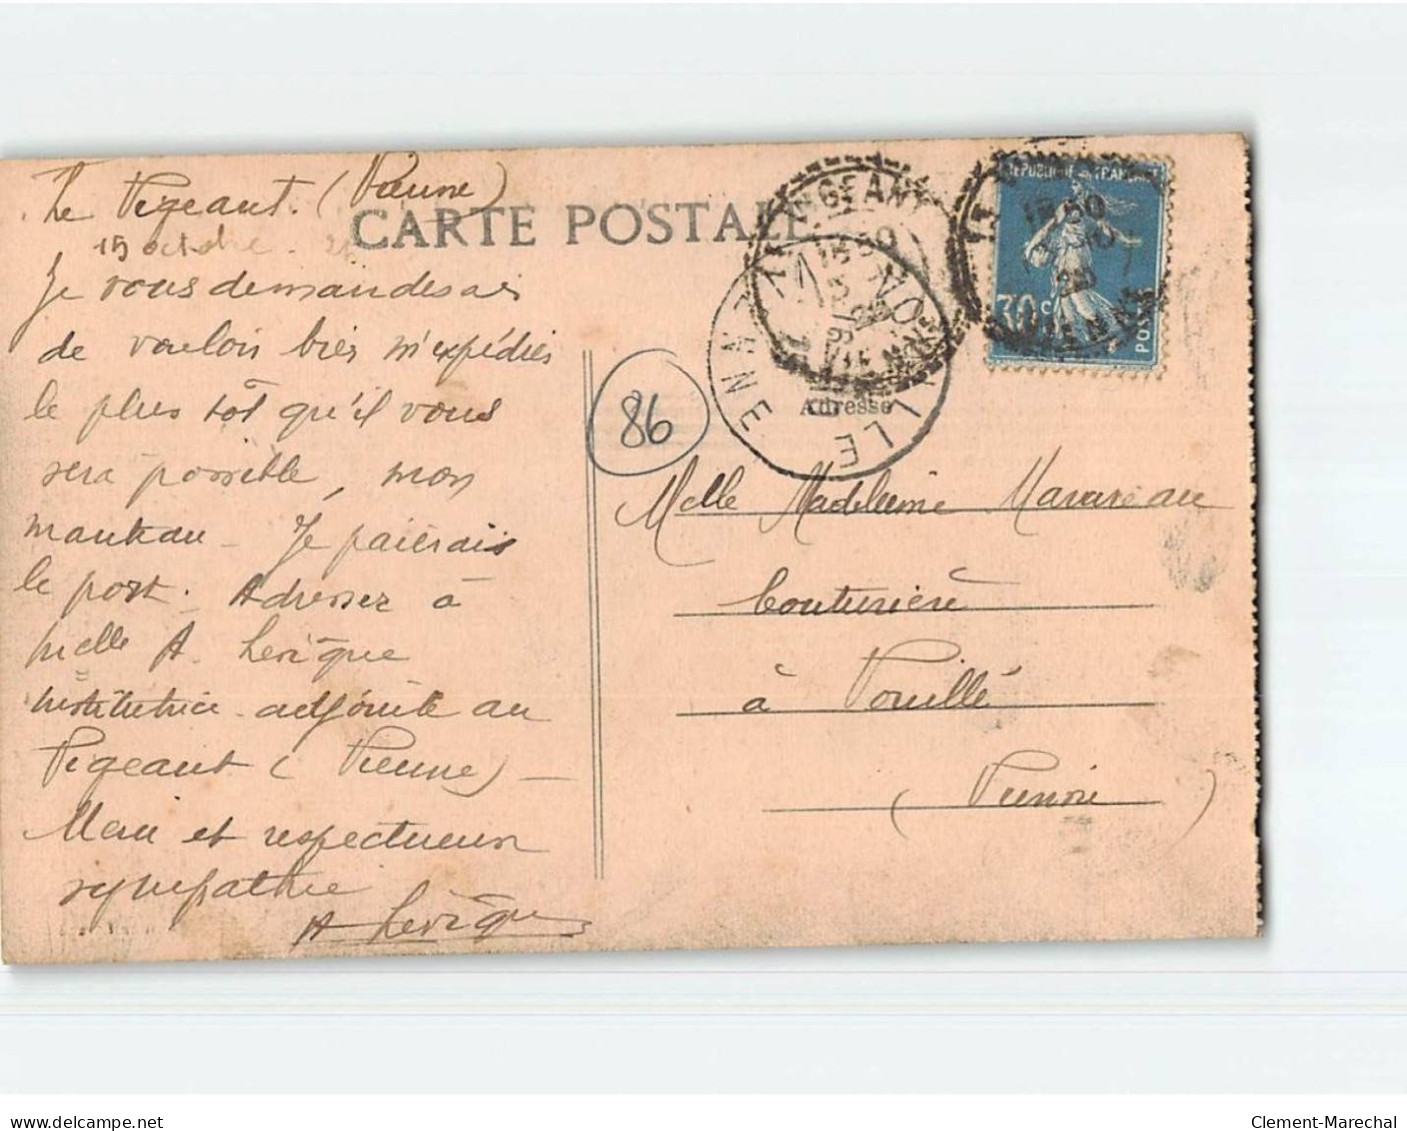 Le Vigeant. (Vienne)
15 octobre
CARTE POSTALE
Je vous demanderais
de vouloir bien m'expédier
le plus tôt qu'il vous
sera possible, mon
manteau - Je paierais
le port. Adresser à
Melle A. Lévêque
institutrice adjointe au
Vigeant (Vienne) -
Merci et respectueuse
sympathie
A Lévêque
86
RÉPUBLIQUE FRANÇAISE
30 c
POSTES
VIGEANT
VIENNE
Adresse
Melle Madeleine
Couturière
à Vouillé
(Vienne)
delcampe.net
Clement-Marechal